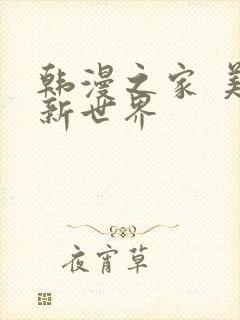 韩漫之家 美
新世界
夜宵草